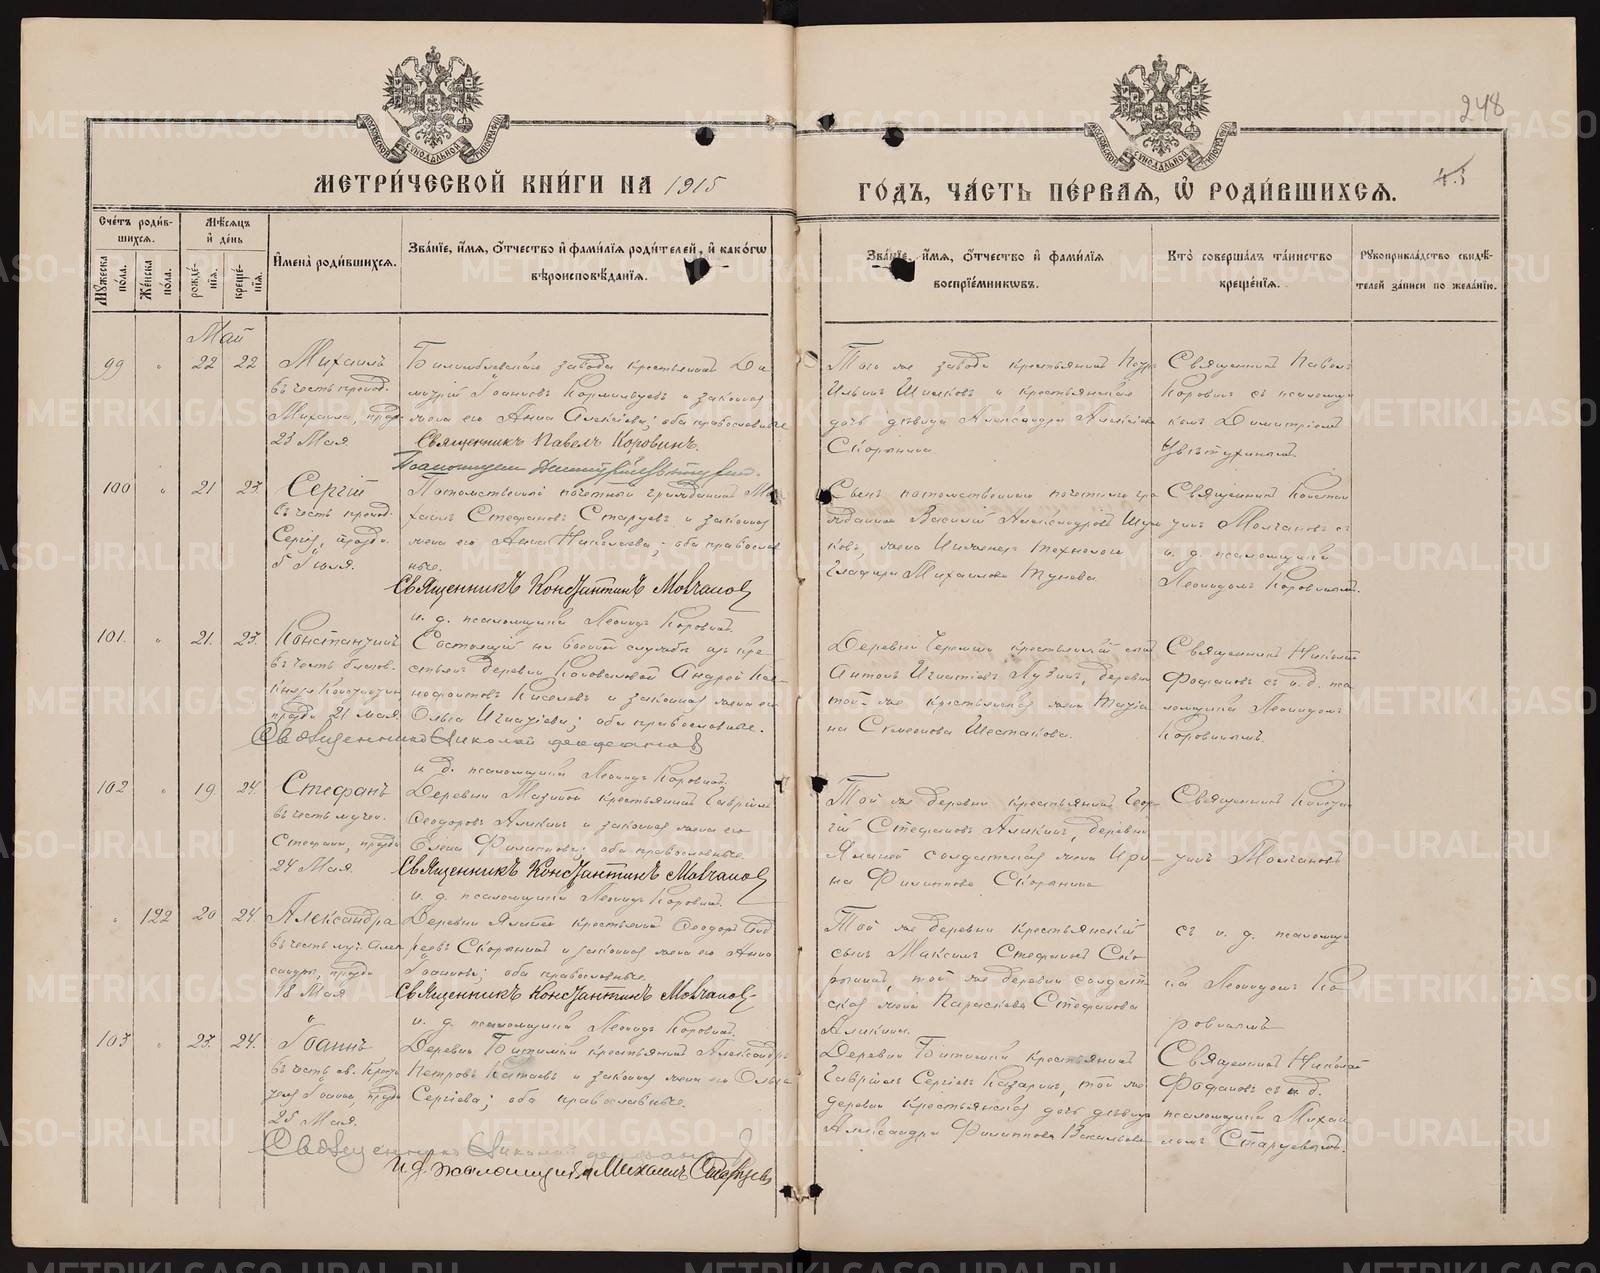 248
МЕТРИ́ЧЕСКОЙ КНИ́ГИ НА 1915
ГО́ДЪ, ЧА́СТЬ ПЕ́РВАЯ, Ѡ РОДИ́ВШИХСЯ.
Сче́тъ роди́в-
шихся.
Мꙋ́жеска по́ла.
Же́нска по́ла.
Мѣ́сяцъ
и҆ де́нь
рожде́-
нїя.
креще́-
нїя.
И҆мена̀ роди́вшихся.
Зва́нїе, и҆́мя, ѻ҆́тчество и҆ фами́лїя роди́телей, и҆ како́гѡ
вѣроисповѣ́данїя.
Зва́нїе, и҆́мя, ѻ҆́тчество и҆ фами́лїя
воспрїе́мникѡвъ.
Кто̀ соверша́лъ та́инство
креще́нїя.
Рꙋкоприкла́дство свидѣ́-
телей за́писи по жела́нїю.
Май
99 " 22 22
Михаилъ
въ честь препод.
Михаила, празд.
23 Мая.
Билимбаевскаго завода крестьянинъ Ди-
митрій Іоанновъ Кормильцевъ и законная
жена его Анна Алексіева; оба православные
Священникъ Павелъ Коровинъ.
Того же завода крестьянинъ Петръ
Ильинъ и крестьянская
дочь дѣвица Александра Алексіева
Скорынина.
Священникъ Павелъ
Коровинъ съ псаломщи-
комъ Димитріемъ
100 " 21 23.
Сергій
въ честь препод.
Сергія, празд.
5 Іюля.
Потомственный почетный гражданинъ Ми-
хаилъ Стефановъ Старцевъ и законная
жена его Анна Николаева; оба православ-
ные.
Священникъ Константинъ Молчановъ
и. д. псаломщика Леонидъ Коровинъ.
Сынъ потомственнаго почетнаго гра-
жданина Василій Александровъ
жена Инженера технолога
Глафира Михаилова
Священникъ Констан-
тинъ Молчановъ съ
и. д. псаломщика
Леонидомъ Коровинымъ.
101. " 21. 23.
Константинъ
въ честь благов.
Князя Константина
празд. 21 мая.
Состоящій на военной службѣ изъ кре-
стьянъ деревни Коноваловой Андрей
Киселевъ и законная жена его
Ольга Игнатіева; оба православные.
Священникъ Николай Фофановъ
и. д. псаломщика Леонидъ Коровинъ.
Деревни крестьянскій сынъ
Антонъ Игнатіевъ деревни
той-же крестьянская жена
на Симеонова Шестакова.
Священникъ Николай
Фофановъ съ и. д. пса-
ломщика Леонидомъ
Коровинымъ.
102 " 19. 24.
Стефанъ
въ честь мучен.
Стефана, празд.
24 Мая.
Деревни крестьянинъ Гавріилъ
Ѳеодоровъ Аликинъ и законная жена его
Елена Филиппова; оба православные.
Священникъ Константинъ Молчановъ
и. д. псаломщика Леонидъ Коровинъ.
Той же деревни крестьянинъ Геор-
гій Стефановъ Аликинъ, деревни
солдатская жена Ири-
на Филиппова Скорынина
Священникъ Констан-
тинъ Молчановъ
" 122 20 24.
Александра
въ честь муч. Алек-
сандры, празд.
18 Мая
Деревни крестьянинъ Ѳеодоръ Анд-
реевъ Скорынинъ и законная жена его Анна
Іоаннова; оба православные.
Священникъ Константинъ Молчановъ
и. д. псаломщика Леонидъ Коровинъ.
Той же деревни крестьянскій
сынъ Максимъ Стефановъ Ско-
рынинъ, той же деревни солдат-
ская жена Параскева Стефанова
Аликина.
съ и. д. псаломщи-
ка Леонидомъ Ко-
ровинымъ
103 " 23. 24.
Іоаннъ
въ честь св. Крести-
теля Іоанна, празд.
25 Мая.
Деревни Битимки крестьянинъ Александръ
Петровъ Катаевъ и законная жена его Ольга
Сергіева; оба православные.
Священникъ Николай Фофановъ
и. д. псаломщика Михаилъ Старцевъ
Деревни Битимки крестьянинъ
Гавріилъ Сергіевъ Казаринъ, той же
деревни крестьянская дочь дѣвица
Александра Филиппова
Священникъ Николай
Фофановъ съ и. д.
псаломщика Михаи-
ломъ Старцевымъ.
METRIKI.GASO-URAL.RU